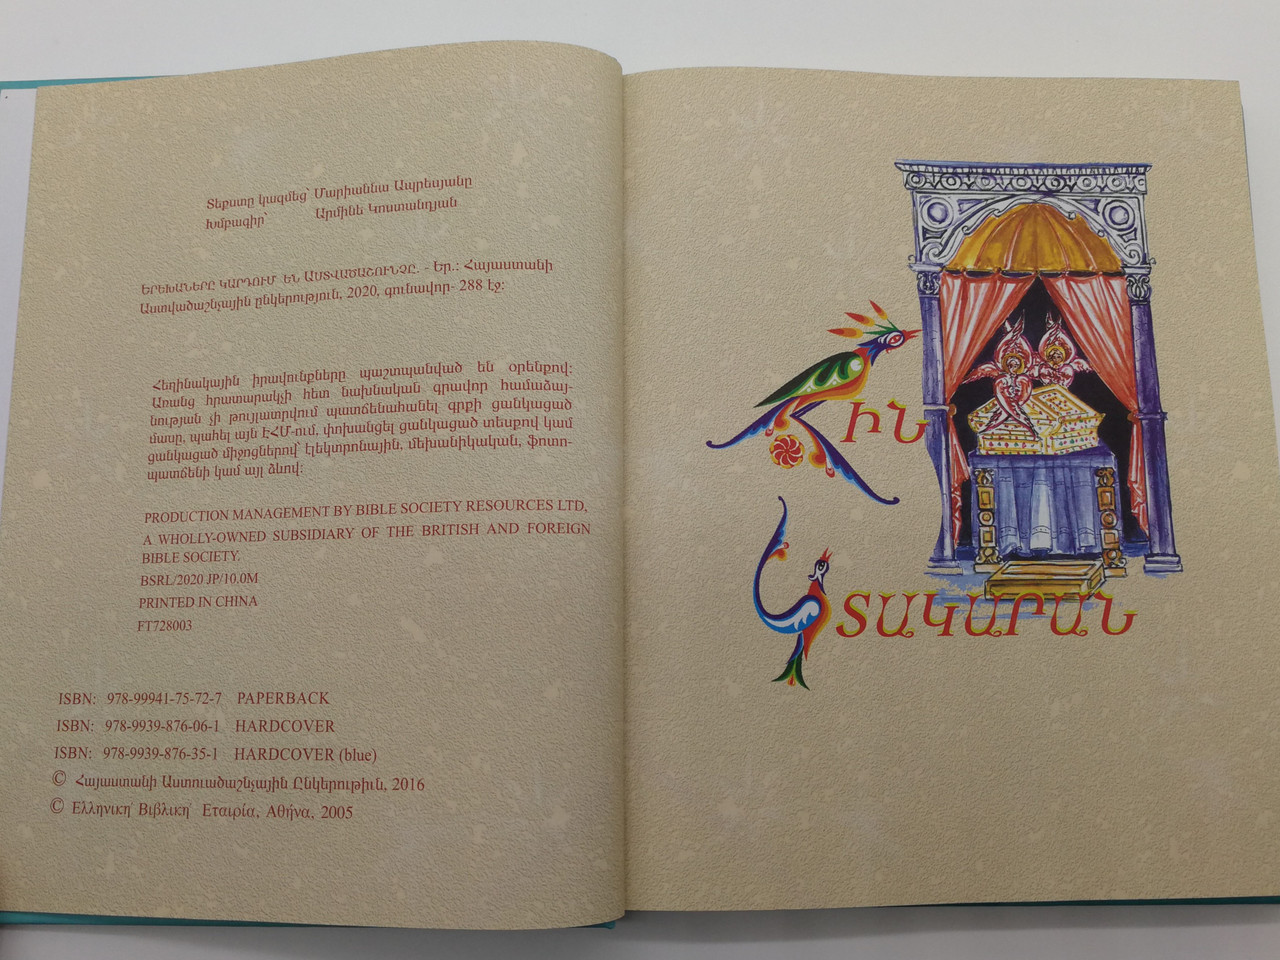 Տեքստը կազմեց՝ Մարիաննա Ապրեսյանը
Խմբագիր՝ Արմինե Կոստանդյան
ԵՐԵԽԱՆԵՐԸ ԿԱՐԴՈՒՄ ԵՆ ԱՍՏՎԱԾԱՇՈՒՆՉԸ. - Եր.: Հայաստանի
Աստվածաշնչային ընկերություն, 2020, գունավոր- 288 էջ:
Հեղինակային իրավունքները պաշտպանված են օրենքով:
Առանց հրատարակչի հետ նախնական գրավոր համաձայ-
նության չի թույլատրվում պատճենահանել գրքի ցանկացած
մասը, պահել այն ԷՀՄ-ում, փոխանցել ցանկացած տեսքով կամ
ցանկացած միջոցներով՝ էլեկտրոնային, մեխանիկական, ֆոտո-
պատճենի կամ այլ ձևով:
PRODUCTION MANAGEMENT BY BIBLE SOCIETY RESOURCES LTD,
A WHOLLY-OWNED SUBSIDIARY OF THE BRITISH AND FOREIGN
BIBLE SOCIETY.
BSRL/2020 JP/10,0M
PRINTED IN CHINA
FT728003
ISBN: 978-99941-75-72-7 PAPERBACK
ISBN: 978-9939-876-06-1 HARDCOVER
ISBN: 978-9939-876-35-1 HARDCOVER (blue)
© Հայաստանի Աստուածաշնչային Ընկերութիւն, 2016
© Ελληνικη΄ Βιβλικη΄ Εταιρία, Αθήνα, 2005
ՀԻՆ
ԿՏԱԿԱՐԱՆ